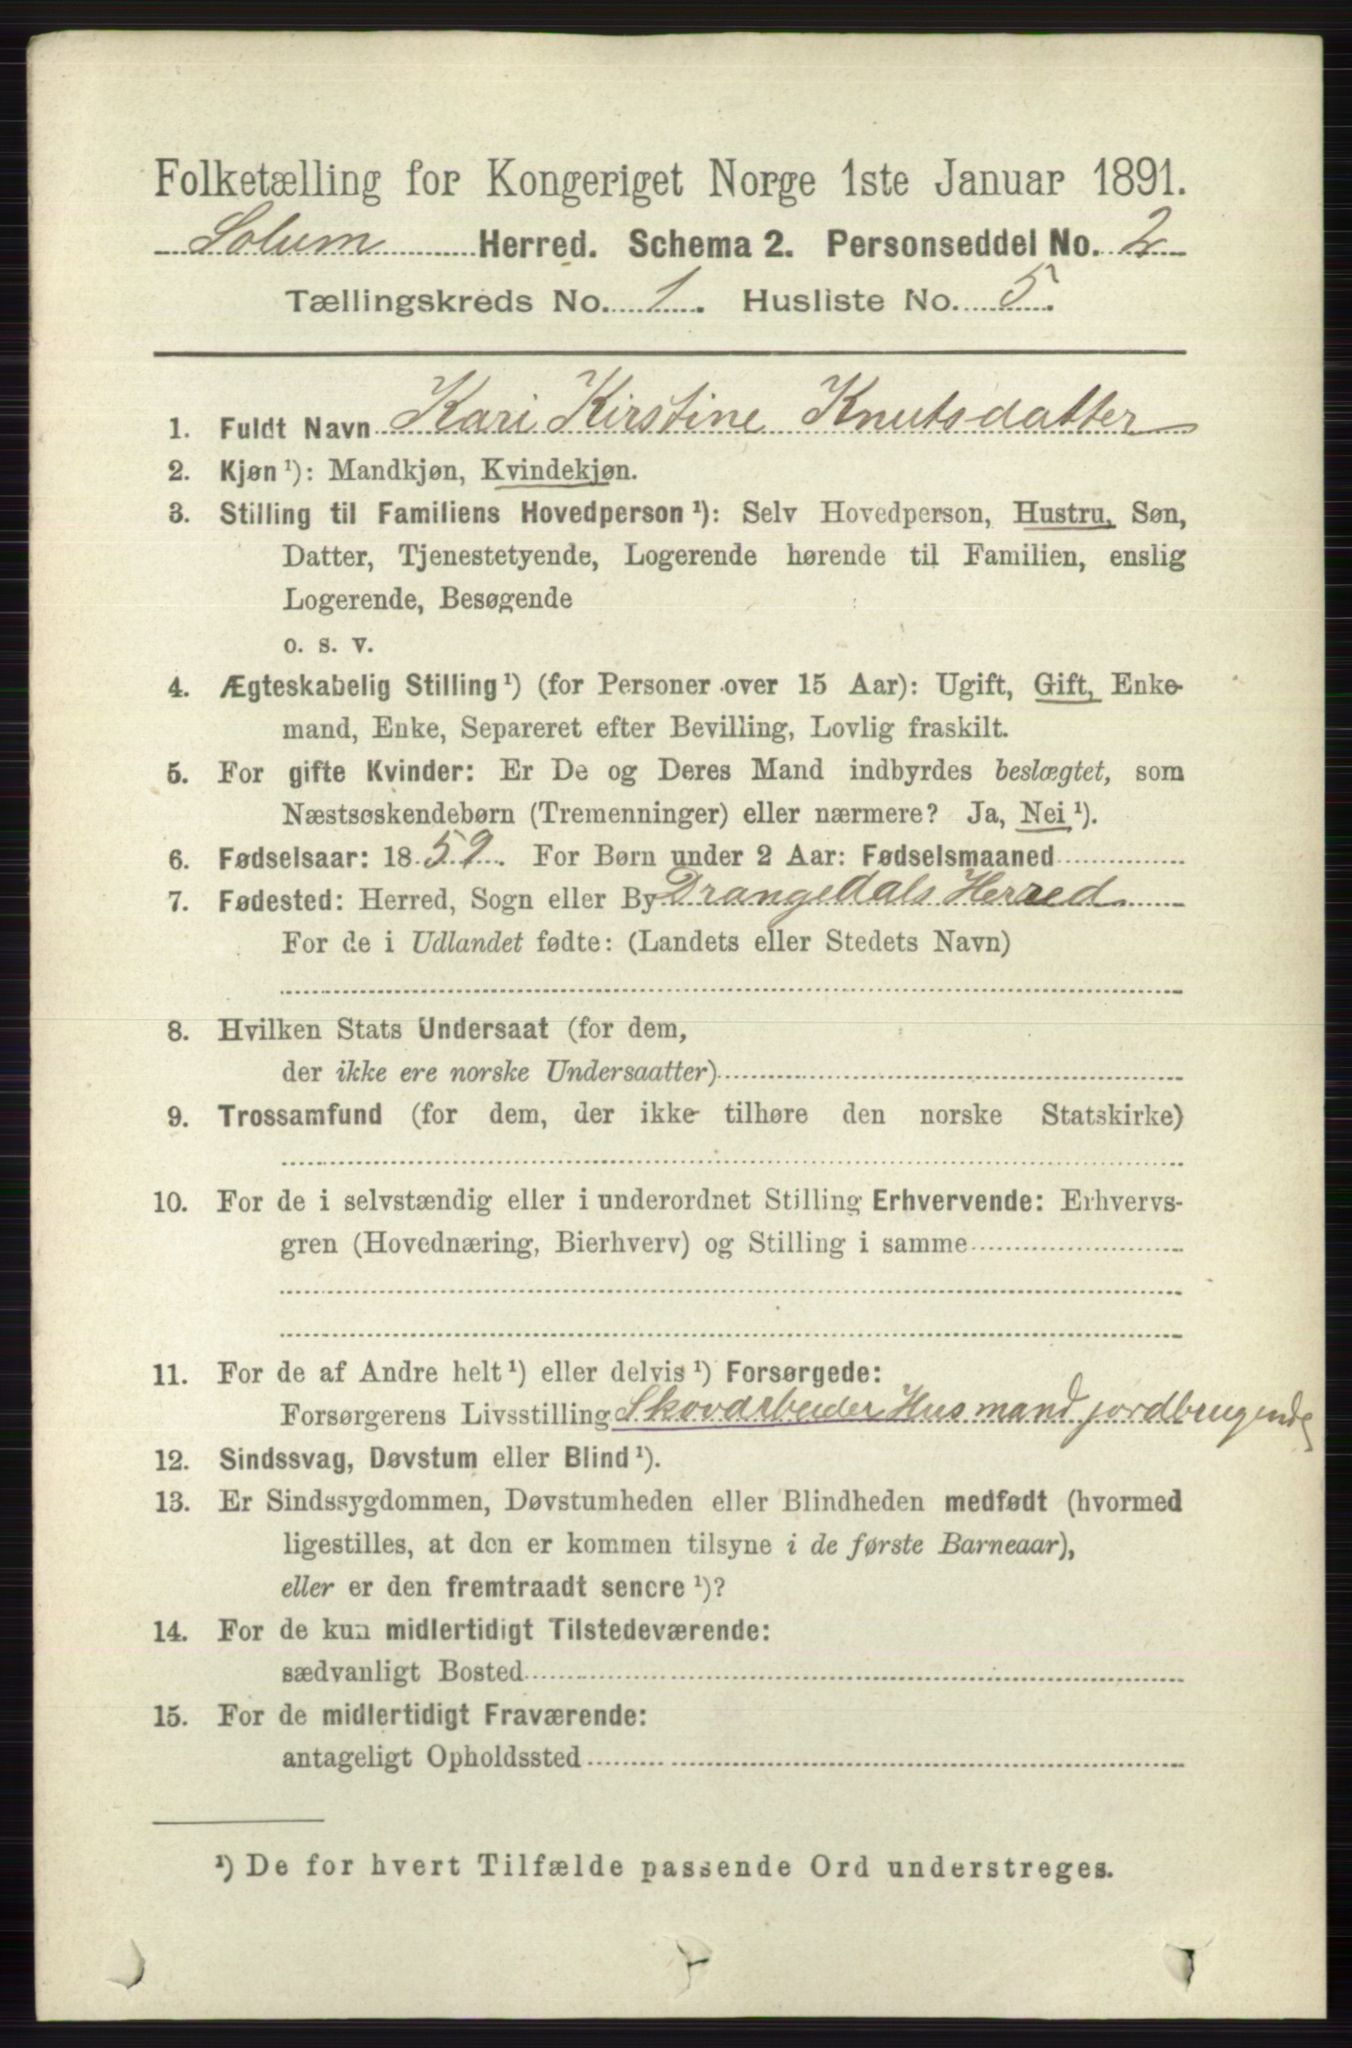 Folketælling for Kongeriget Norge 1ste Januar 1891.
Solum Herred. Schema 2. Personseddel No. 2
Tællingskreds No. 1. Husliste No. 5.
1. Fuldt Navn Kari Kirstine Knutsdatter
2. Kjøn ¹): Mandkjøn, Kvindekjøn.
3. Stilling til Familiens Hovedperson ¹): Selv Hovedperson, Hustru, Søn,
Datter, Tjenestetyende, Logerende hørende til Familien, enslig
Logerende, Besøgende
o. s. v.
4. Ægteskabelig Stilling ¹) (for Personer over 15 Aar): Ugift, Gift, Enke-
mand, Enke, Separeret efter Bevilling, Lovlig fraskilt.
5. For gifte Kvinder: Er De og Deres Mand indbyrdes beslægtet, som
Næstsøskendebørn (Tremenninger) eller nærmere? Ja, Nei ¹).
6. Fødselsaar: 1859. For Børn under 2 Aar: Fødselsmaaned
7. Fødested: Herred, Sogn eller By Drangedals Herred
For de i Udlandet fødte: (Landets eller Stedets Navn)
8. Hvilken Stats Undersaat (for dem,
der ikke ere norske Undersaatter)
9. Trossamfund (for dem, der ikke tilhøre den norske Statskirke)
10. For de i selvstændig eller i underordnet Stilling Erhvervende: Erhvervs-
gren (Hovednæring, Bierhverv) og Stilling i samme
11. For de af Andre helt ¹) eller delvis ¹) Forsørgede:
Forsørgerens Livsstilling Skovarbeider Husmand jordbrugende
12. Sindssvag, Døvstum eller Blind ¹).
13. Er Sindssygdommen, Døvstumheden eller Blindheden medfødt (hvormed
ligestilles, at den er kommen tilsyne i de første Barneaar),
eller er den fremtraadt senere ¹)?
14. For de kun midlertidigt Tilstedeværende:
sædvanligt Bosted
15. For de midlertidigt Fraværende:
antageligt Opholdssted
¹) De for hvert Tilfælde passende Ord understreges.